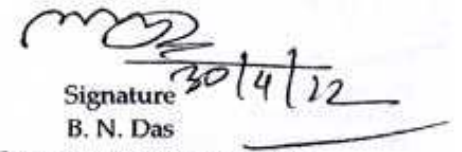 30/4/22
Signature
B. N. Das